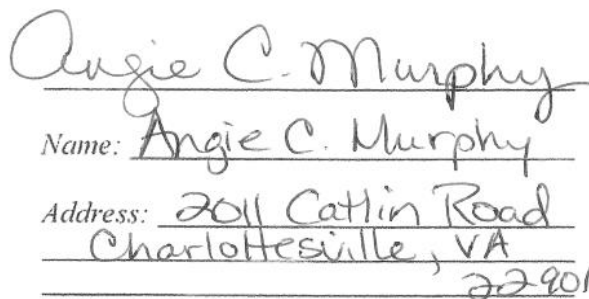 Angie C. Murphy
Name: Angie C. Murphy
Address: 2011 Catlin Road
Charlottesville, VA
22901